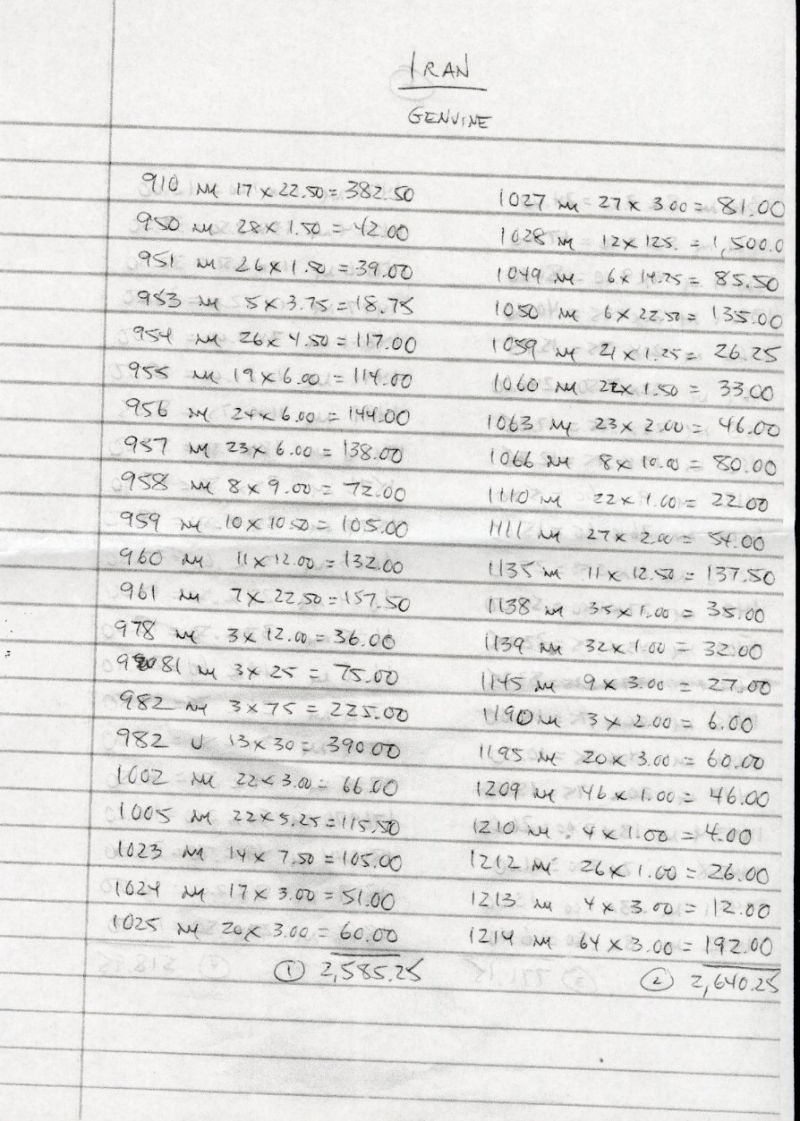 IRAN
GENUINE
910 NH 17 x 22.50 = 382.50
950 NH 28 x 1.50 = 42.00
951 NH 26 x 1.50 = 39.00
953 NH 5 x 3.75 = 18.75
954 NH 26 x 4.50 = 117.00
955 NH 19 x 6.00 = 114.00
956 NH 24 x 6.00 = 144.00
957 NH 23 x 6.00 = 138.00
958 NH 8 x 9.00 = 72.00
959 NH 10 x 10.50 = 105.00
960 NH 11 x 12.00 = 132.00
961 NH 7 x 22.50 = 157.50
978 NH 3 x 12.00 = 36.00
981 NH 3 x 25 = 75.00
982 NH 3 x 75 = 225.00
982 U 13 x 30 = 390.00
1002 NH 22 x 3.00 = 66.00
1005 NH 22 x 5.25 = 115.50
1023 NH 14 x 7.50 = 105.00
1024 NH 17 x 3.00 = 51.00
1025 NH 20 x 3.00 = 60.00
① 2,585.25
1027 NH 27 x 3.00 = 81.00
1028 NH 12 x 125. = 1,500.0
1049 NH 6 x 14.25 = 85.50
1050 NH 6 x 22.50 = 135.00
1059 NH 21 x 1.25 = 26.25
1060 NH 22 x 1.50 = 33.00
1063 NH 23 x 2.00 = 46.00
1066 NH 8 x 10.00 = 80.00
1110 NH 22 x 1.00 = 22.00
1111 NH 27 x 2.00 = 54.00
1135 NH 11 x 12.50 = 137.50
1138 NH 35 x 1.00 = 35.00
1139 NH 32 x 1.00 = 32.00
1145 NH 9 x 3.00 = 27.00
1190 NH 3 x 2.00 = 6.00
1195 NH 20 x 3.00 = 60.00
1209 NH 46 x 1.00 = 46.00
1210 NH 4 x 1.00 = 4.00
1212 NH 26 x 1.00 = 26.00
1213 NH 4 x 3.00 = 12.00
1214 NH 64 x 3.00 = 192.00
② 2,640.25